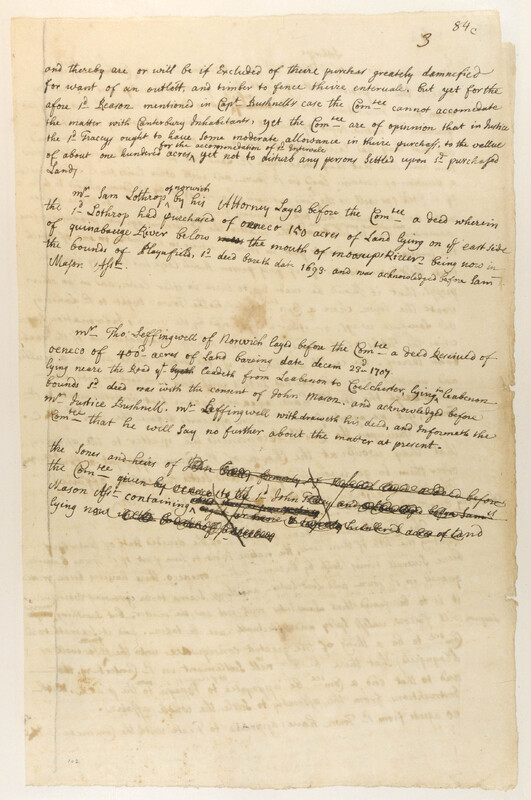 84c
3
and thereby are or will be if Excluded of theire purchas greately damnified
for want of an outlett, and timber to fence theire intervale. But yet for the
afore sd. Reason mentioned in Capt. Bushnells case the Comtee cannot accomedate
the matter with Canterbury Inhabitants; yet the Comtee are of opinion that in Justice
the sd. Traceys ought to have Some moderate allowance in theire purchass, to the vallue
for the accommodation of sd. Intervale
of about one hundred acres, yet not to disturb any persons Settled upon sd. purchased
Land;
mr. Sam Lothrop of norwich by his Attorney Layed before the Comtee a deed wherein
the sd. Lothrop had purchased of oeneco 150 acres of Land lying on ye east side
of quinabauge River below the mouth of moosups River, being now in
the bounds of Playnfield, sd. deed beareth date 1693. and was acknowledged before Sam
Mason Asst.
mr. Tho: Leffingwell of Norwich layed before the Comtee a deed Received of
oeneco of 400d. acres of Land bareing date decem 23d. 1707
lying neare the Road yt. leadeth from Leabenon to Coulchester, lying in Leabenon
bounds sd. deed was with the consent of John Mason. and acknowledged before
mr. Justice Bushnell. mr. Leffingwell withdraweth his deed, and Informeth the
Comtee that he will Say no further about the matter at present.
the Sones and heirs of John
the Comtee given by oeneco to the sd. John and
Mason Asst. containing
lying now hundred acres of Land